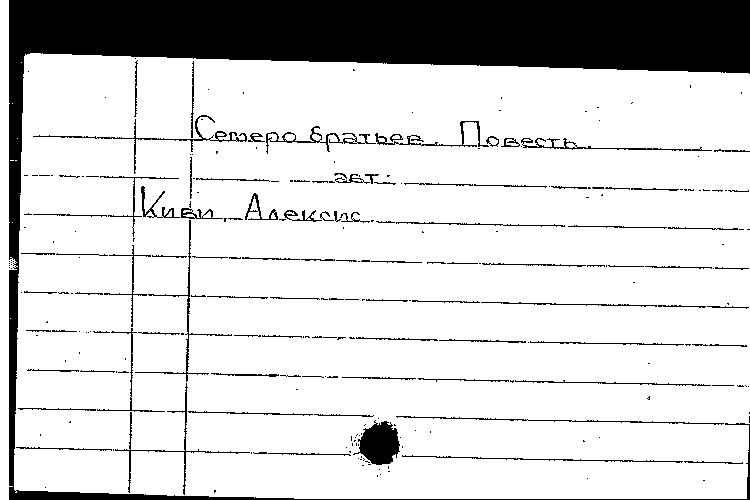 Семеро братьев. Повесть.
авт.:
Киви, Алексис.